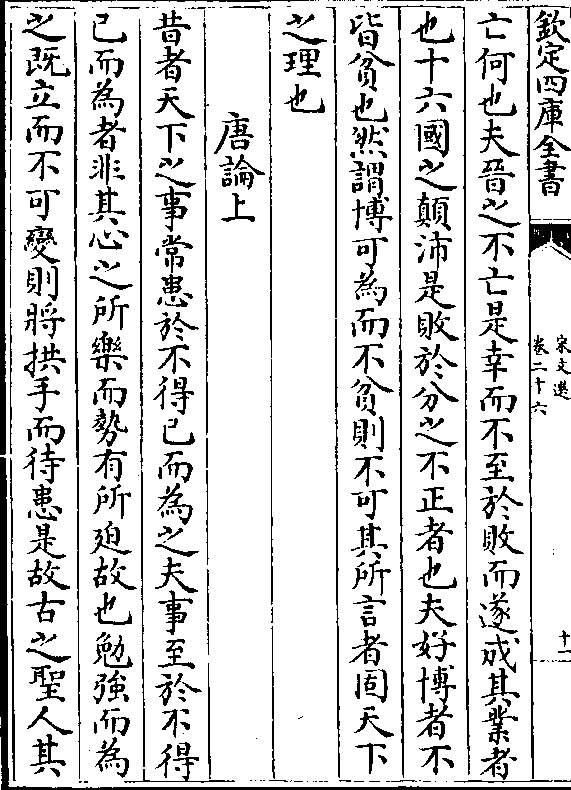 欽定四庫全書
宋文選
卷二十六
十一
亡何也夫晉之不亡是幸而不至於敗而遂成其業者
也十六國之顛沛是敗於分之不正者也夫好博者不
皆貧也然謂博可為而不貧則不可其所言者固天下
之理也
唐論上
昔者天下之事常患於不得已而為之夫事至於不得
已而為者非其心之所樂而勢有所迫故也勉強而為
之既立而不可變則將拱手而待患是故古之聖人其